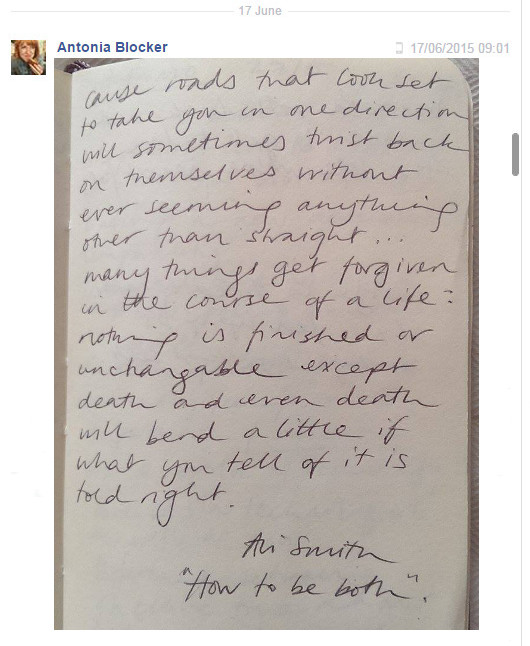 17 June
Antonia Blocker
17/06/2015 09:01
cause roads that look set
to take you in one direction
will sometimes twist back
on themselves without
ever seeming anything
other than straight...
many things get forgiven
in the course of a life:
nothing is finished or
unchangable except
death and even death
will bend a little if
what you tell of it is
told right.
Ali Smith
"How to be both".